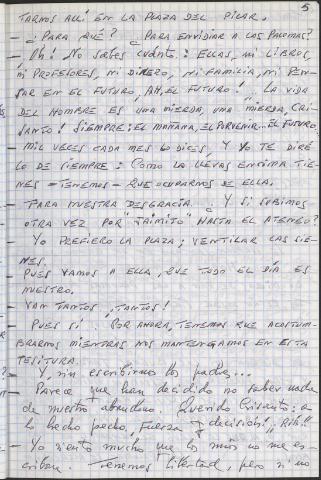 5
TARNOS ALLÍ EN LA PLAZA DEL PILAR.
- ¿PARA QUÉ? ¿PARA ENVIDIAR A LAS PALOMAS?
- ¡OH! NO SABES CUÁNTO: ELLAS, NI LIBROS,
NI PROFESORES, NI DINERO, NI FAMILIA, NI PEN-
SAR EN EL FUTURO, ¡AH, EL FUTURO!.. LA VIDA
DEL HOMBRE ES UNA MIERDA, UNA MIERDA, CRI-
SANTO! SIEMPRE: EL MAÑANA, EL PORVENIR... EL FUTURO.
- MIL VECES CADA MES LO DICES. Y YO TE DIRÉ
LO DE SIEMPRE: COMO LA LLEVAS ENCIMA TIE-
NES - TENEMOS - QUE OCUPARNOS DE ELLA.
- PARA NUESTRA DESGRACIA. ¿Y SI SUBIMOS
OTRA VEZ POR "JAIMITO" HASTA EL ATENEO?
- YO PREFIERO LA PLAZA; VENTILAR LAS SIE-
NES.
- PUES VAMOS A ELLA, QUE TODO EL DÍA ES
NUESTRO.
- VAN TANTOS, ¡TANTOS!
- PUES SÍ. POR AHORA, TENEMOS QUE ACOSTUM-
BRARNOS MIENTRAS NOS MANTENGAMOS EN ESTA
TESITURA.
- Y, sin escribirnos los padres...
- Parece que han decidido no saber nada
de nuestro abandono. Querido Crisanto: a
lo hecho pecho, fuerza y decisión!
- Yo siento mucho que los míos no me es-
criban. Tenemos libertad, pero si no